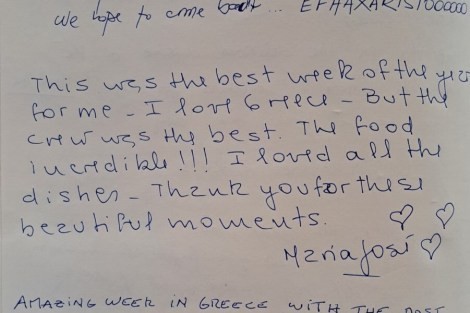 We hope to come back... EFHAXARISTOOOOOO
This was the best week of the year
for me - I love Greece - But the
crew was the best. The food
incredible!!! I loved all the
dishes - Thank you for these
beautiful moments.
Maria José
AMAZING WEEK IN GREECE WITH THE